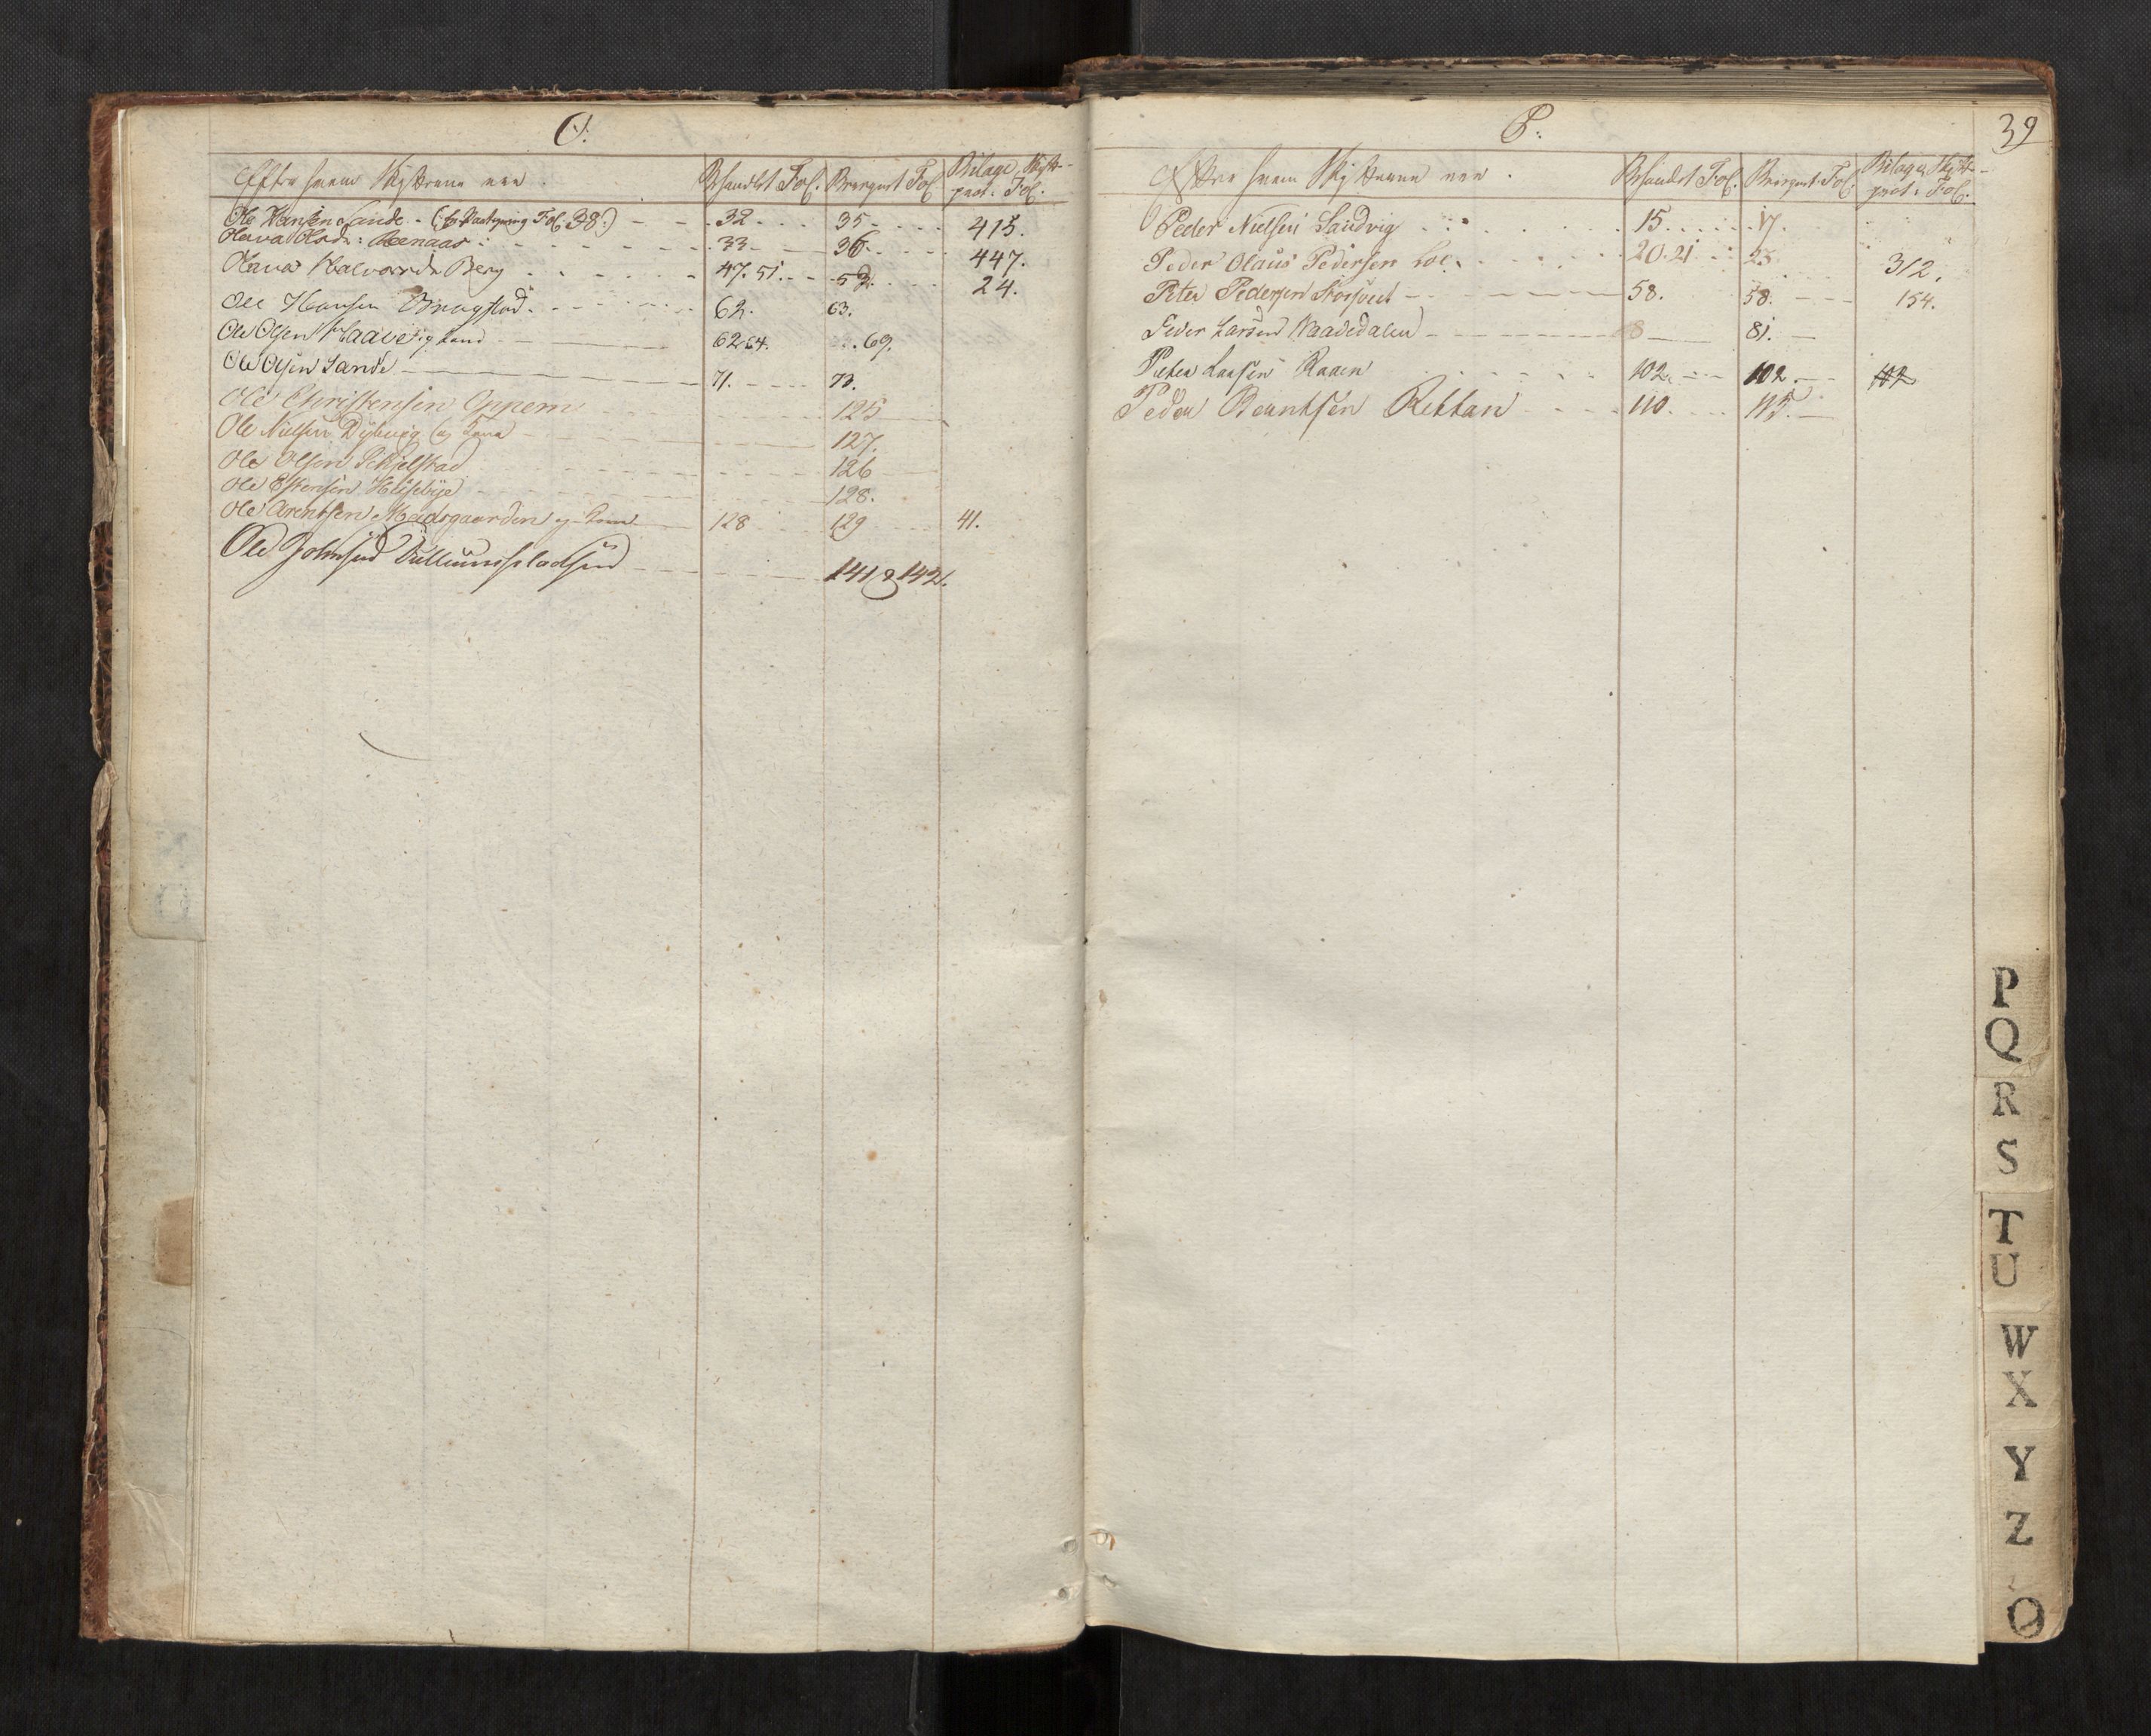 O.
Efter hvem Skifterne ere. Behandlet Fol. Brevgivet Fol Bilage Skifte-
prot. Fol.
Ole Hansen Sande - (Paategning Fol. 38.) 32 35 415.
Olava Olsdr: Reenaas 33 36 447.
Olava Halvorsdr Berg 47. 51. 52. 24.
Ole Hansen Bragstad 62. 63.
Ole Olsen Haave og Kone 62 64. 69.
Ole Olsen Sande 71. 73.
Ole Christensen Oppem 125
Ole Nielsen Dybvig og Kone 127.
Ole Olsen Schjelstad 126
Ole Estensen Huseby 128.
Ole Arentsen Madsgaarden og Kone 128 129 41.
Ole Johnsen 141 & 142.
P. 39
Efter hvem Skifterne ere. Behandlet Fol. Brevgivet Fol. Bilage Skifte-
prot. Fol.
Peder Nielsen Sandvig 15. 17.
Peder Olaus Pedersen Loe 20. 21 23. 312.
Peter Pedersen 58. 58. 154.
Peder Larsen Waadedalen 8 81.
Peter Larsen Raaen 102. 102. 102
Peder Berntsen Rettan 110. 115.
P
Q
R
S
T
U
W
X
Y
Z
Ø